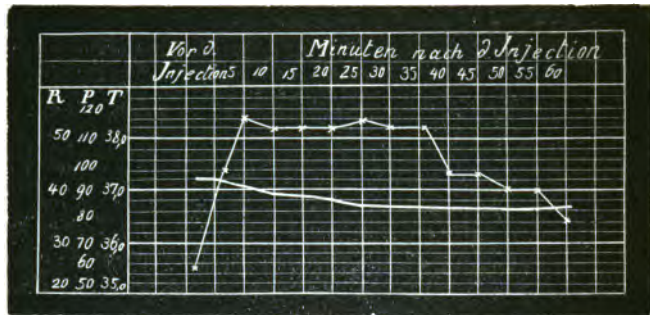 Vor d. Minuten nach d Injection
Injection 5 10 15 20 25 30 35 40 45 50 55 60
R P T
120
50 110 38,0
100
40 90 37,0
80
30 70 36,0
60
20 50 35,0